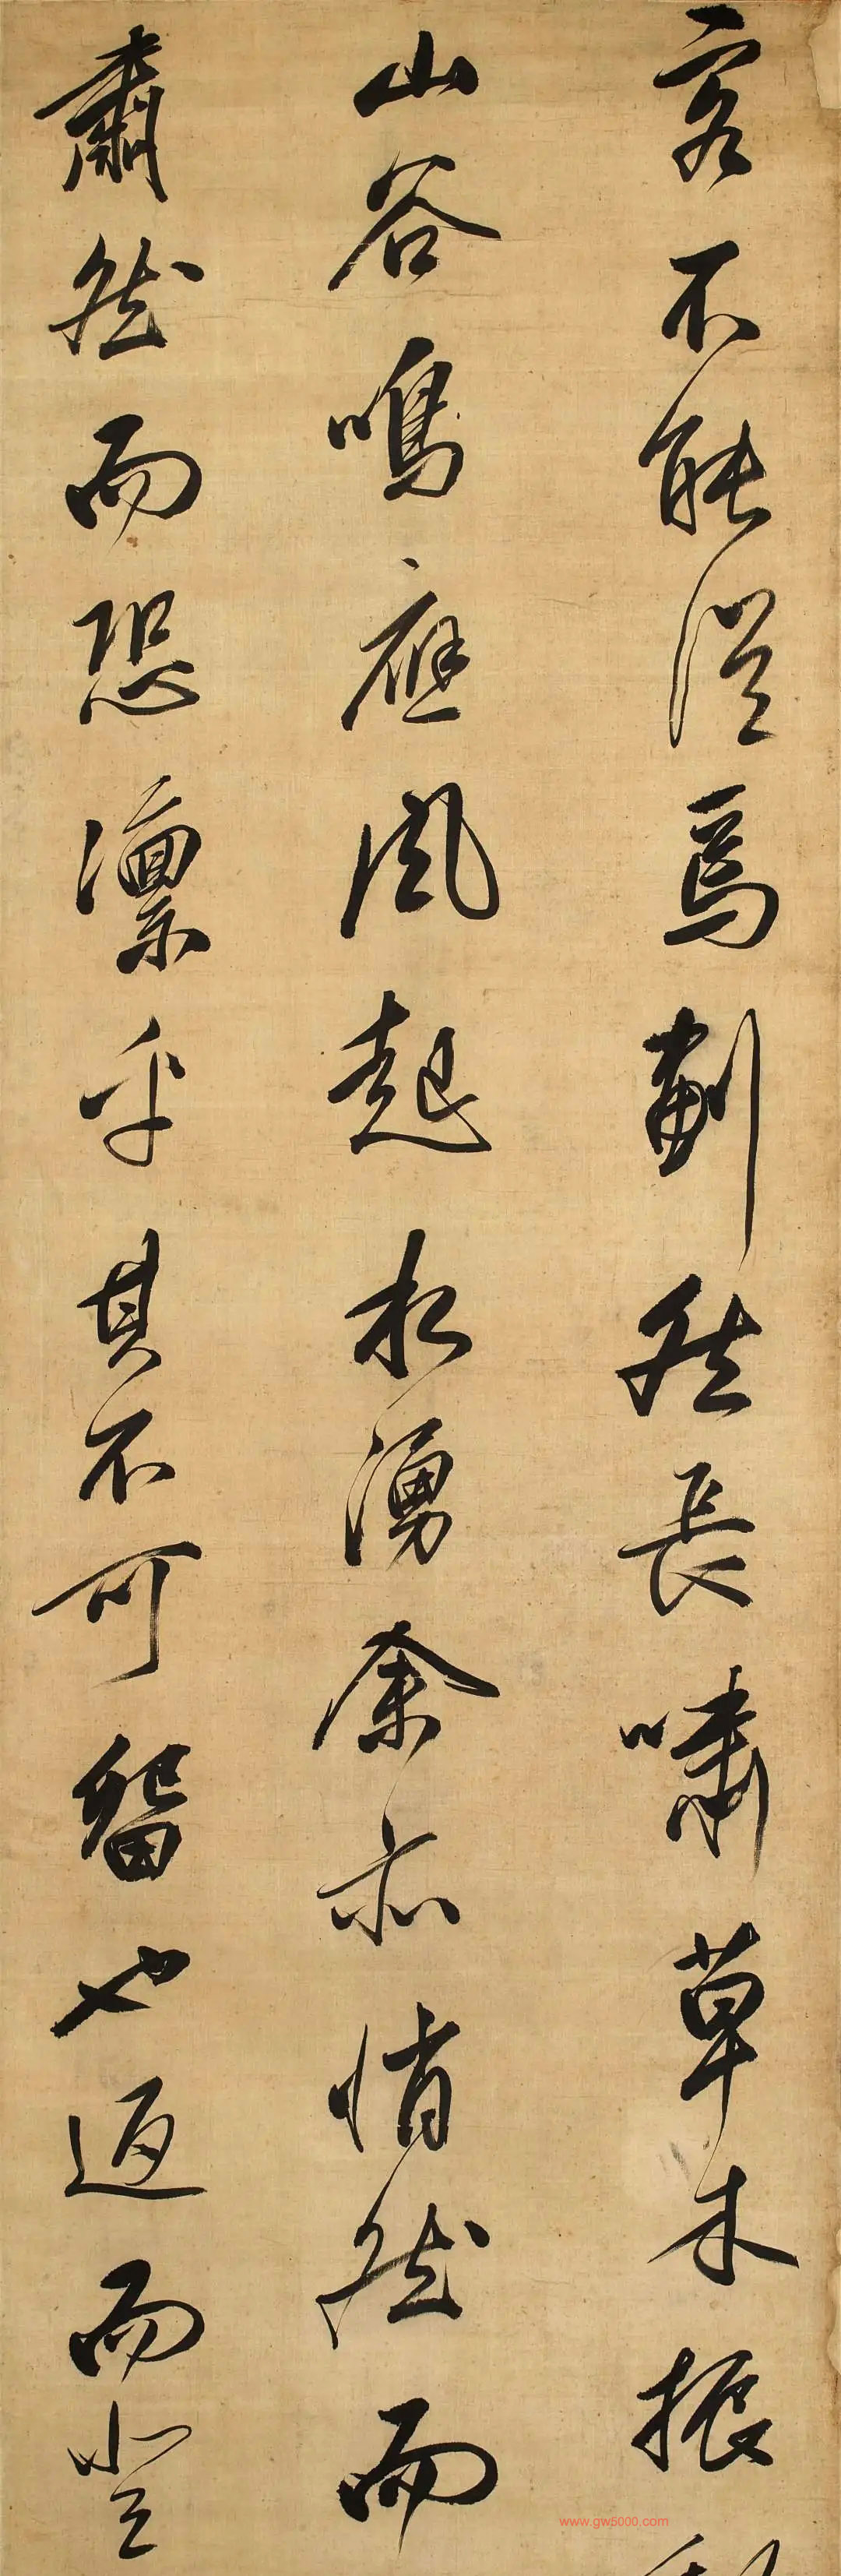 客不能從焉劃然長嘯草木振
山谷鳴應風起水湧余亦悄然而
肅然而恐凛乎其不可留也返而登
www.gw5000.com